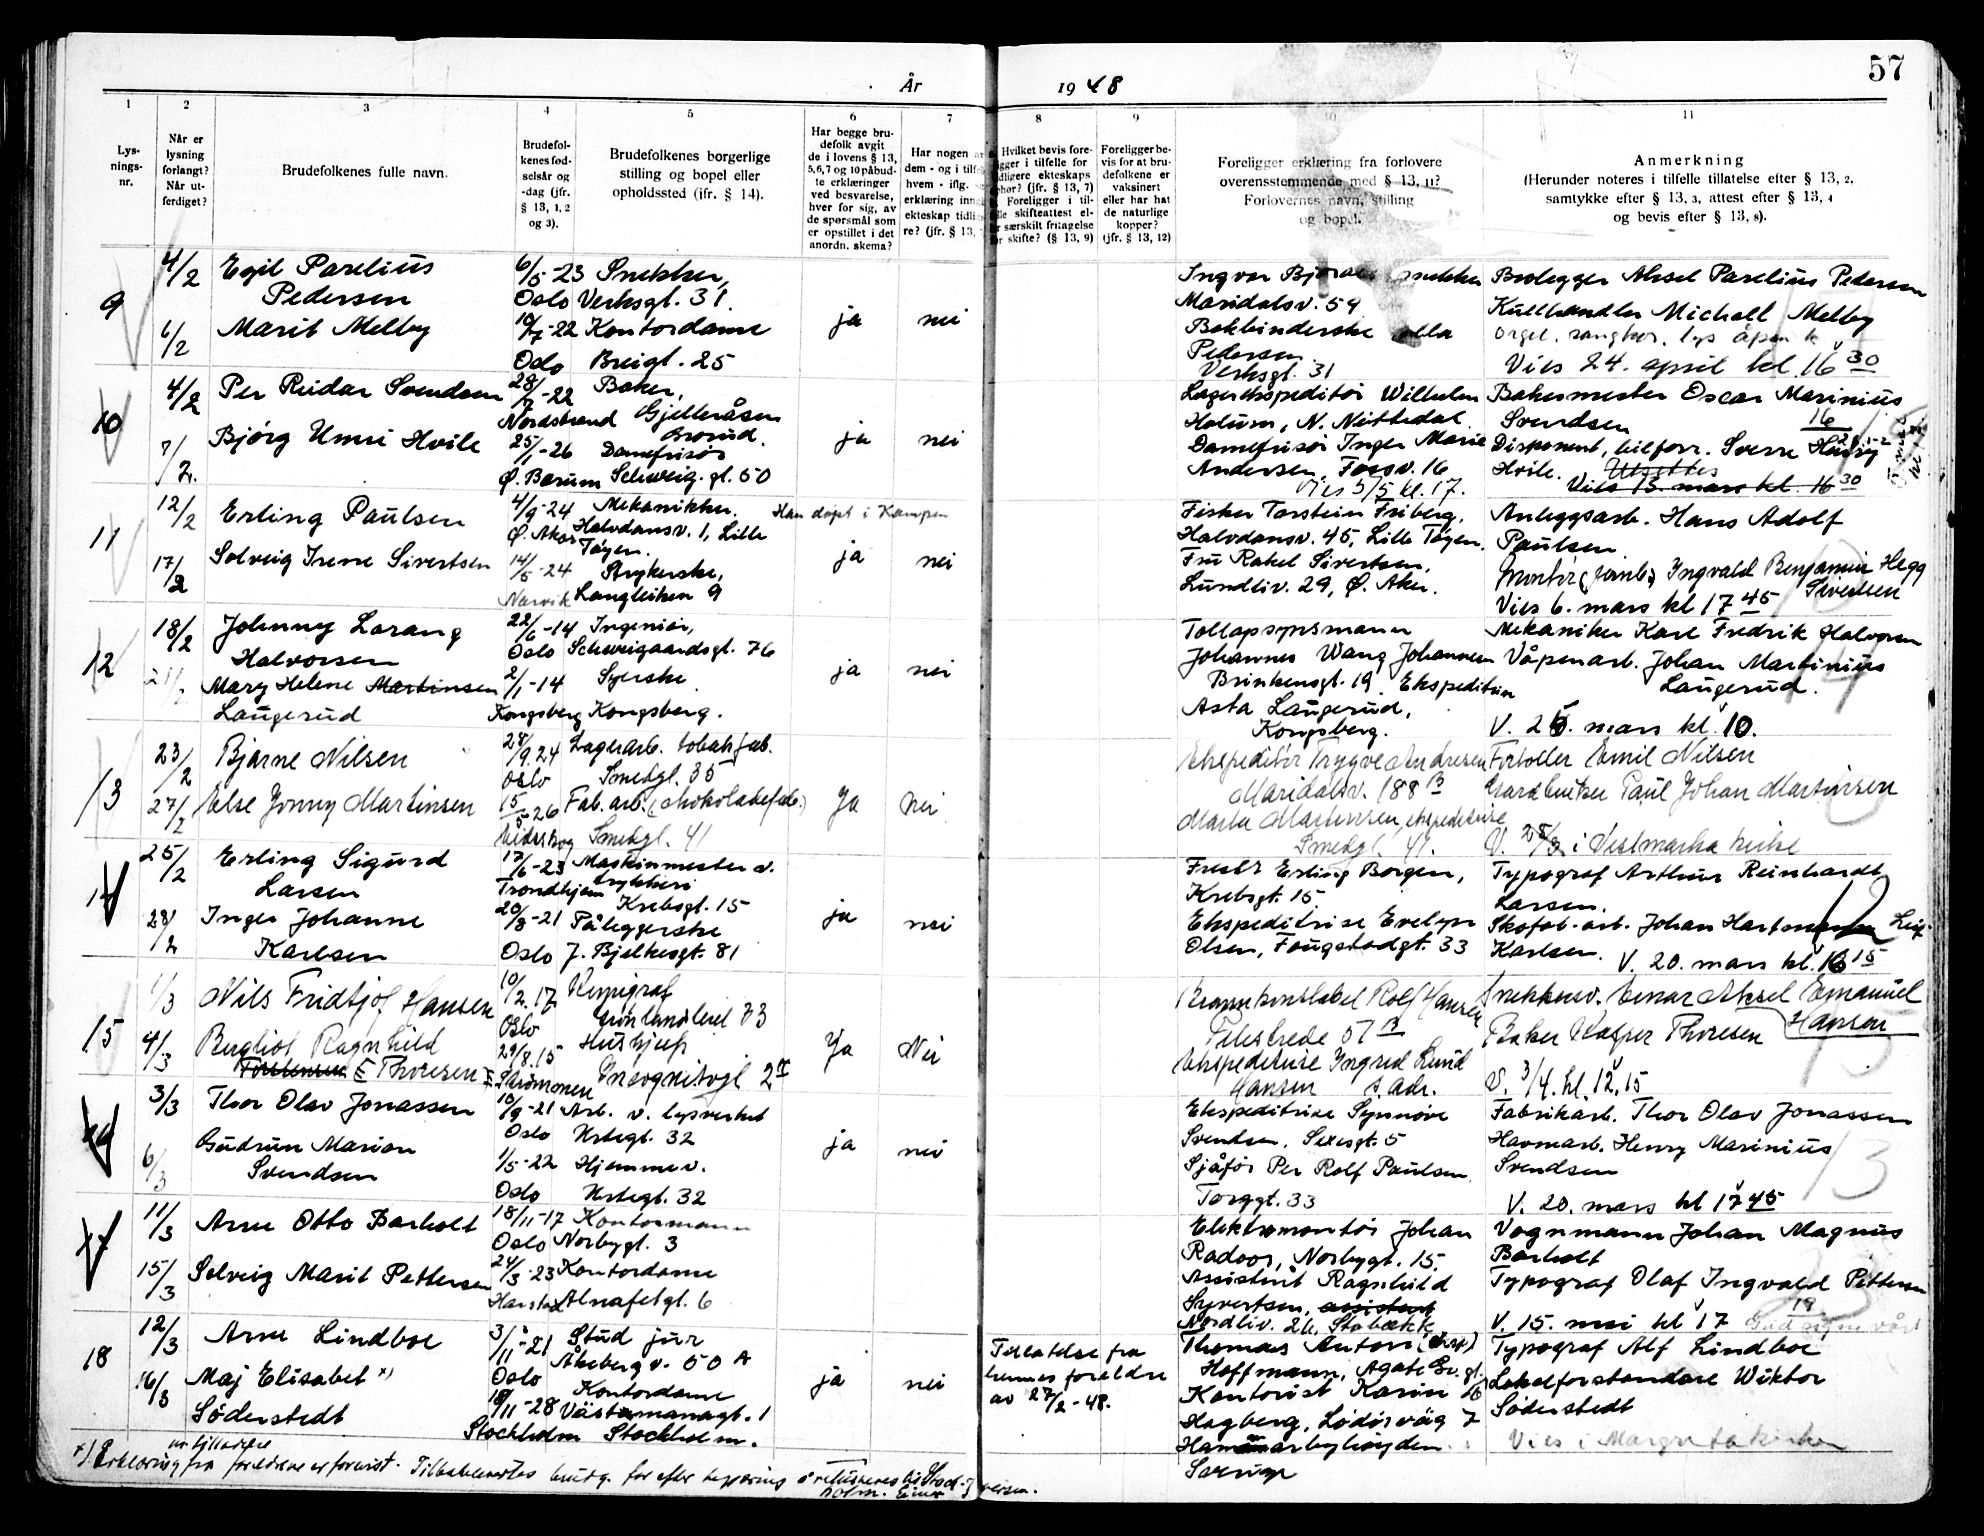 57
År 1948
1 2 3 4 5 6 7 8 9 10 11
Lys-
nings-
nr.
Når er
lysning
forlangt?
Når ut-
ferdiget?
Brudefolkenes fulle navn.
Brudefol-
kenes fød-
selsår og
-dag (jfr.
§ 13, 1, 2
og 3).
Brudefolkenes borgerlige
stilling og bopel eller
opholdssted (jfr. § 14).
Har begge bru-
defolk avgit
de i lovens § 13,
5,6,7 og 10 påbud-
te erklæringer
ved besvarelse,
hver for sig, av
de spørsmål som
er opstillet i det
anordn. skema?
Har nogen
dem - og i tilf
hvem - iflg.
erklæring inn
ekteskap tidli
re? (jfr. § 13,
Hvilket bevis fore-
ligger i tilfelle for
tidligere ekteskaps
ophør? (jfr. § 13, 7)
Foreligger i til-
felle skifteattest el-
ler særskilt fritagelse
for skifte? (§ 13, 9)
Foreligger be-
vis for at bru-
defolkene er
vaksinert
eller har hat
de naturlige
kopper?
(jfr. § 13, 12)
Foreligger erklæring fra forlovere
overensstemmende med § 13, 11?
Forlovernes navn, stilling
og bopel.
Anmerkning
(Herunder noteres i tilfelle tillatelse efter § 13, 2.
samtykke efter § 13, 3, attest efter § 13, 4
og bevis efter § 13, 8).
9
4/2 Egil Parelius
Pedersen
6/5-23 Snekker,
Oslo Verksgt. 31.
6/2 Marit Melby
-22 Kontordame
Oslo Breigt. 25
ja nei
Ingvar
Maridalsv. 59
Bokbinderske
Pedersen
Verksgt. 31
Brolegger Aksel Parelius Pedersen
Kullhandler Michall Melby
Vies 24. april kl. 16 30
10
4/2 Per Reidar Svendsen
28/7-22 Baker,
Nordstrand Gjelleråsen
Grorud.
7/2. Bjørg Unni Hvile
25/1-26 Damefrisør
Ø. Bærum Schweig.gt. 50
ja nei
Lagerekspeditør Wilhelm
Holum, N. Nittedal
Damefrisør Inger Marie
Andersen, Fossv. 16
Vies 5/5 kl. 17.
Bakermester Oscar Marinius
Svendsen
Disponent, bilforr. Sverre Henry
Hvile. Utsettes
Vies 13. mars kl. 16 30
11
12/2 Erling Paulsen
4/9-24 Mekaniker.
Ø. Aker Halvdansv. 1, Lille
Tøyen.
Han døpt i Kampen
17/2 Solveig Irene Sivertsen
14/5-24 Strykerske,
Narvik Langleiken 9
ja nei
Fisker Torstein Friberg,
Halvdansv. 45, Lille Tøyen.
Fru Rakel Sivertsen,
Lundliv. 29, Ø. Aker.
Anleggsarb. Hans Adolf
Paulsen
Montör Ingvald Benjamin Hegg
Sivertsen
Vies 6. mars kl 17 45
12
18/2 Johnny Lorang
Halvorsen
22/6-14 Ingeniør,
Oslo Schweigaardsgt. 76
Mary Helene Martinsen
Laugerud
2/1-14 Syerske
Kongsberg Kongsberg.
ja nei
Tollopsynsmann
Johannes Wang Johannesen
Brinkensgt. 19. Ekspeditrise
Asta Laugerud,
Kongsberg.
Mekaniker Karl Fredrik Halvorsen
Våpenarb. Johan Martinius
Laugerud.
V. 26. mars kl. 10.
13
23/2 Bjarne Nilsen
28/9.24 Lagerarb. tobakfab.
Oslo Smedgt. 35
27/2 Else Jonny Martinsen
15/5-26 Fab. arb. (chokoladefab.)
Vidskog Smedgt. 41
Ja Nei
Ekspeditör Trygve Andresen
Maridalsv. 188 B
Marta Martinsen, ekspeditrise
Smedgt. 41.
Fortoller Emil Nilsen
Gardbruker Paul Johan Martinsen
V. 28/3 i Vestmarka kirke
14
25/2 Erling Sigurd
Larsen
17/6-23 Maskinmester v.
Trondhjem trykkeri
Krebsgt. 15
28/2 Inger Johanne
Karlsen
20/8-21 Påleggerske
Oslo J. Bjelkesgt. 81
ja nei
Erling Borgen,
Krebsgt. 15
Ekspeditrise Evelyn
Olsen, Fougstadgt. 33
Typograf Arthur Reinhardt
Larsen.
Skofab.arb. Johan Hartmann Leif
Karlsen. V. 20. mars kl. 16 15
15
1/3 Nils Fridtjof Hansen
10/2.17 Kemigraf
Oslo Grønlandsleret 33
4/3 Bergliot Ragnhild
Torstensen Thoresen
29/8.15 Hushjelp
Strömmen Incognitogt 2 II
Ja Nei
Brannkonstabel Rolf Hansen
Pilestrede 57 B
Ekspeditrise Ingrid Lund
Hansen s. adr.
Snekkersv. Einar Aksel Emanuel
Hansen
Baker Kasper Thoresen
V. 3/4. kl. 12.15
3/3 Thor Olav Jonassen
10/9-21 Arb. v. lysverket
Oslo Urtegt. 32
6/3 Gudrun Marion
Svendsen
1/5-22 Hjemmev.
Oslo Urtegt. 32
ja nei
Ekspeditrise Synnøve
Svendsen, Sexesgt. 5
Sjåför Per Rolf Paulsen
Torggt. 33
Fabrikarb. Thor Olav Jonassen
Havnearb. Henry Marinius
Svendsen
V. 20. mars kl 17 45
17
11/3 Arne Otto Barholt
18/11-17 Kontormann
Oslo Norbygt. 3
15/3 Solveig Marit Pettersen
24/3-23 Kontordame
Harstad Alnafetgt. 6
Elektromontör Johan
Radoor, Norbygt. 15.
Assistent Ragnhild
Syvertsen, assistent
Nordliv. 26, Stabekk
Vognmann Johan Magnus
Barholt
Typograf Olaf Ingvald Pettersen
V. 15. mai kl 17
18
12/3 Arne Lindboe
3/11-21 Stud jur
Oslo Åkebergv. 50 A
16/3 Maj Elisabet x)
Söderstedt
18/11-28 Kontordame
Västmannagt. 1
Stockholm Stockholm.
ja nei
Tillatelse fra
hennes foreldre
av 27/2-48.
Thomas Anton
Hoffmann, Agate Gr. gt.
Kontorist Karin 16
Hagberg, Lödösväg 7
Hammarbyhöjden.
Typograf Alf Lindboe
Lokalforstandare Wiktor
Söderstedt
Vies i Margretakirken
x) Erklæring fra foreldrene er forevist.